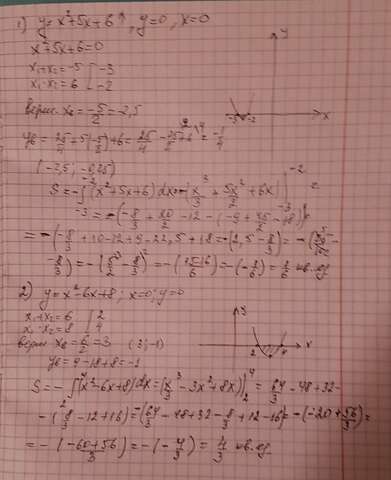 1) y = x²+5x+6 ↑, y=0, x=0
x²+5x+6=0
x₁+x₂=-5 | -3
x₁·x₂=6 | -2
верш. x₀ = -5/2 = -2,5
y₀ = 25/4 + 5(-5/2)+6 = 25/4 - 25/2 + 6 = -1/4
(-2,5; -0,25)
y
x
-3 -2
S = -∫₋₃⁻² (x²+5x+6)dx = -(x³/3 + 5x²/2 + 6x)|₋₃⁻² =
= -(-8/3 + 20/2 - 12 - (-9 + 45/2 - 18)) =
= -(-8/3 + 10 - 12 + 9 - 22,5 + 18 = -(2,5 - 8/3) = -(5/2 -
- 8/3) = -(5/2 - 8/3) = -(15-16/6) = -(-1/6) = 1/6 кв.ед
2) y = x²-6x+8; x=0; y=0
x₁+x₂ = 6 | 2
x₁·x₂ = 8 | 4
верш x₀ = 6/2 = 3 (3;-1)
y₀ = 9-18+8 = -1
y
x
2 4
S = -∫₂⁴ (x²-6x+8)dx = (x³/3 - 3x²+8x)|₂⁴ = 64/3 - 48+32-
-(8/3 - 12+16) = -(64/3 - 48+32 - 8/3 + 12-16) = -(-20 + 56/3) =
= -(-60+56/3) = -(-4/3) = 4/3 кв.ед